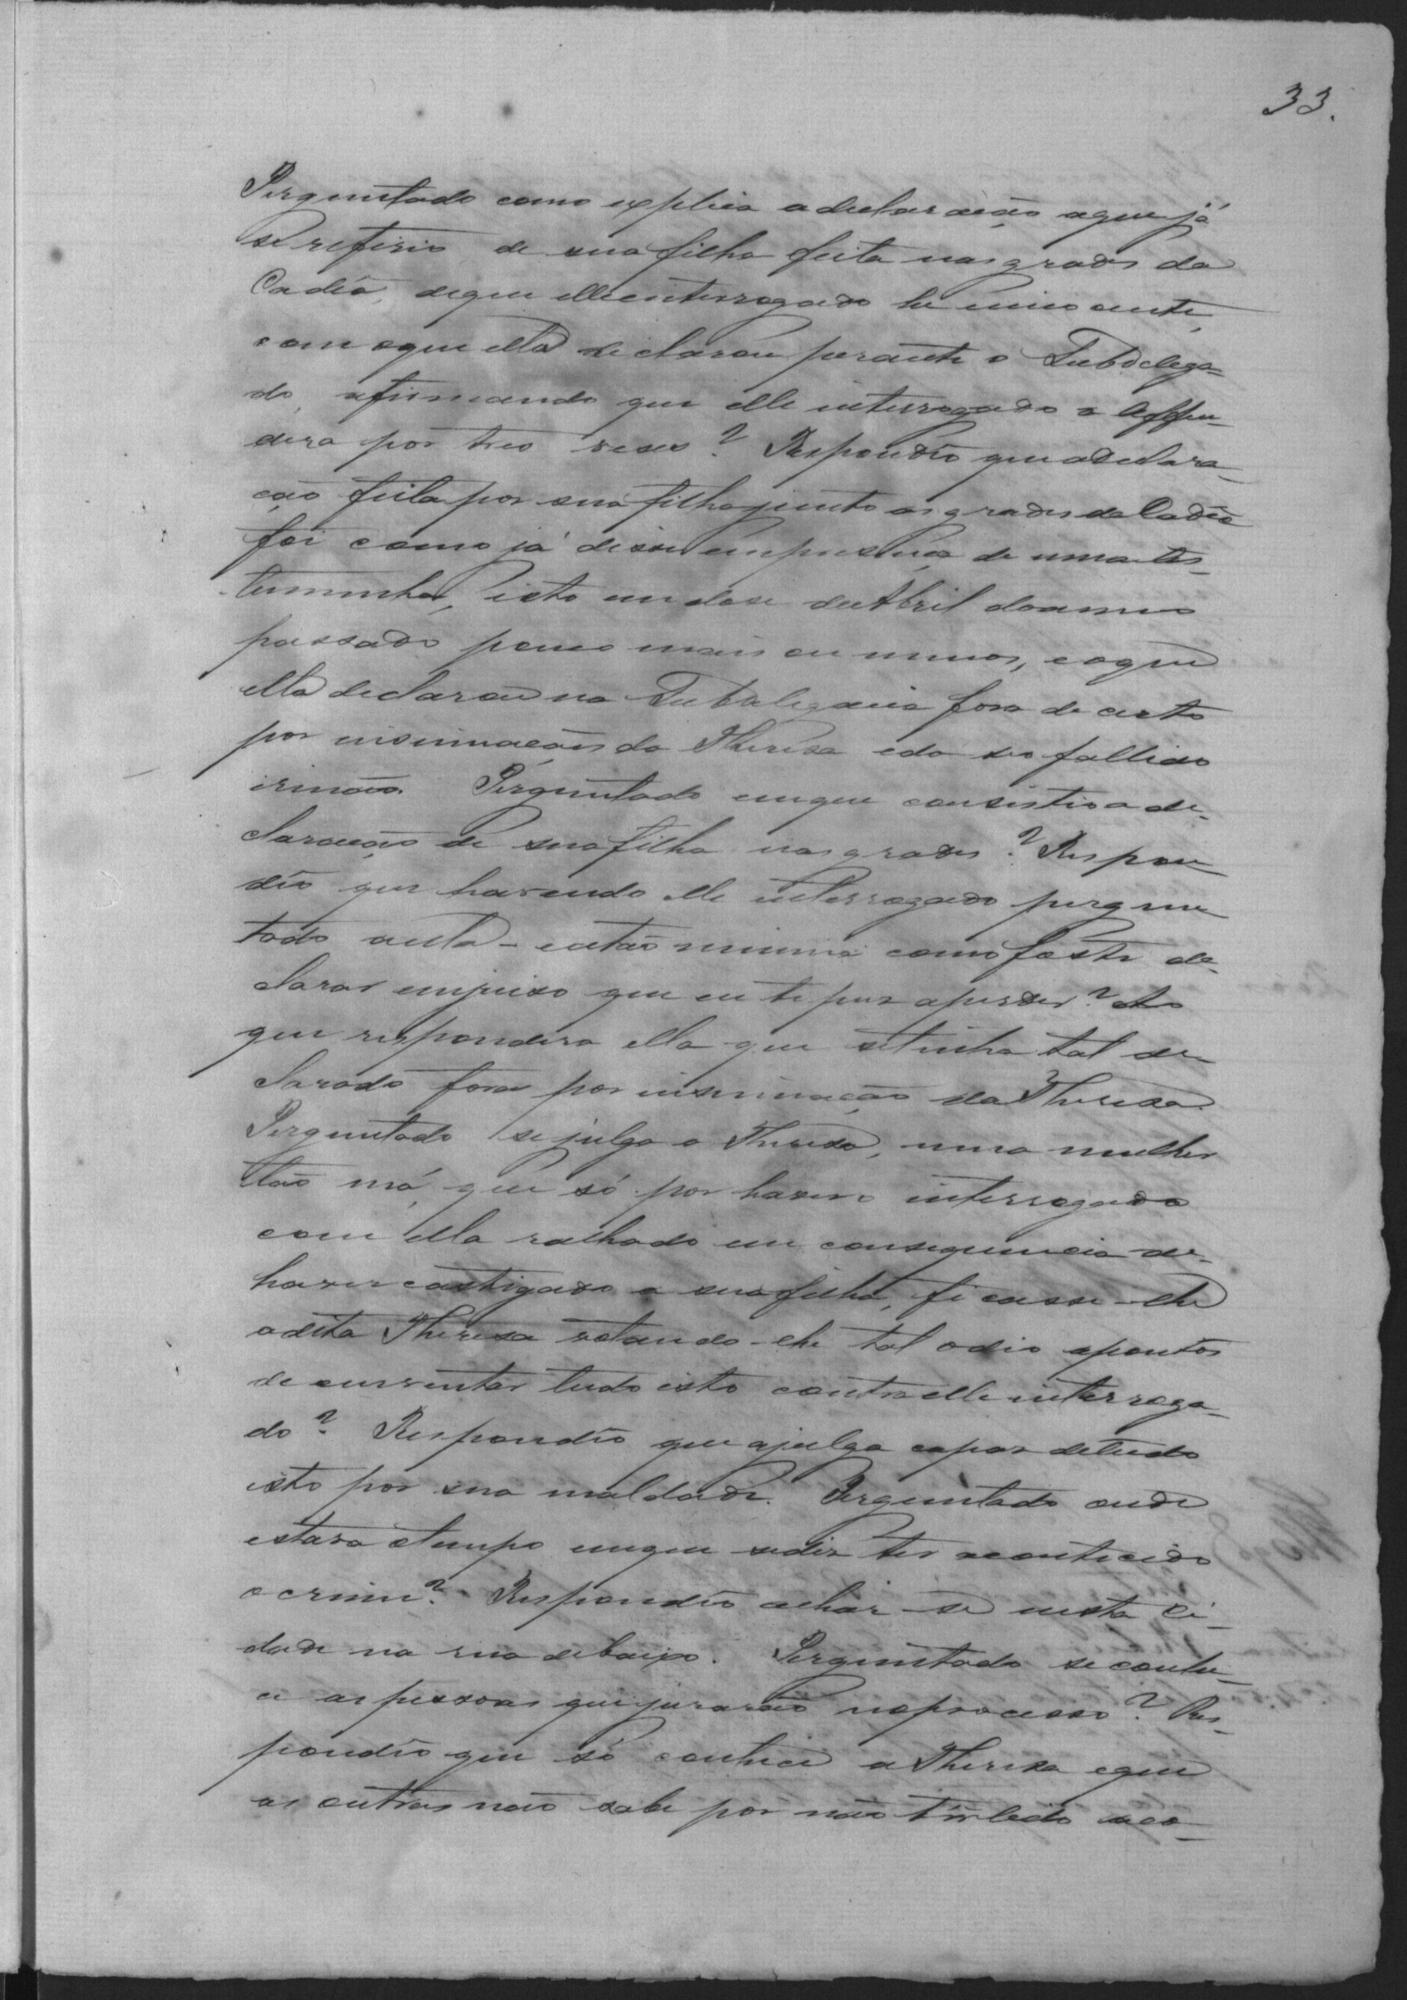 33.
Perguntado como explica a declaração a que já
se referio de sua filha feita nas grades da
Cadêa, de que elle interrogado he innocente,
com o que ella declarou perante o Subdelega-
do, afirmando que elle interrogado a offen-
dera por tres veses? Respondêo que a declara-
ção feita por sua filha junto as grades da Cadêa
foi como já disse em presença de uma tes-
temunha, isto em dose de Abril do anno
passado pouco mais ou menos, e o que
ella declarou na Subdelegacia fora de certo
por insinuações da Theresa e do seo fallecido
irmão. Perguntado em que consistio a de-
claração de sua filha nas grades? Respon-
dêo que havendo elle interrogado pergun-
tado a ella - então menina como foste de-
clarar em juiso que eu te puz a perder? Ao
que respondera ella que se tinha tal de-
clarado fora por insinuação da Theresa.
Perguntado se julga a Theresa, uma mulher
tão má, que só por haver o interrogado
com ella ralhado em consequencia de
haver castigado a sua filha, ficasse-lhe
a dita Theresa votando-lhe tal odio a pontos
de inventar tudo isto contra elle interroga-
do? Respondêo que a julga capas de tudo
isto por sua maldade. Perguntado onde
estava o tempo em que se diz ter acontecido
o crime? Respondêo achar-se nesta ci-
dade na rua de baixo. Perguntado se conhe-
ce as pessoas que jurarão no processo? Res-
pondêo que só conhece a Theresa e que
as outras não sabe por não ter lido